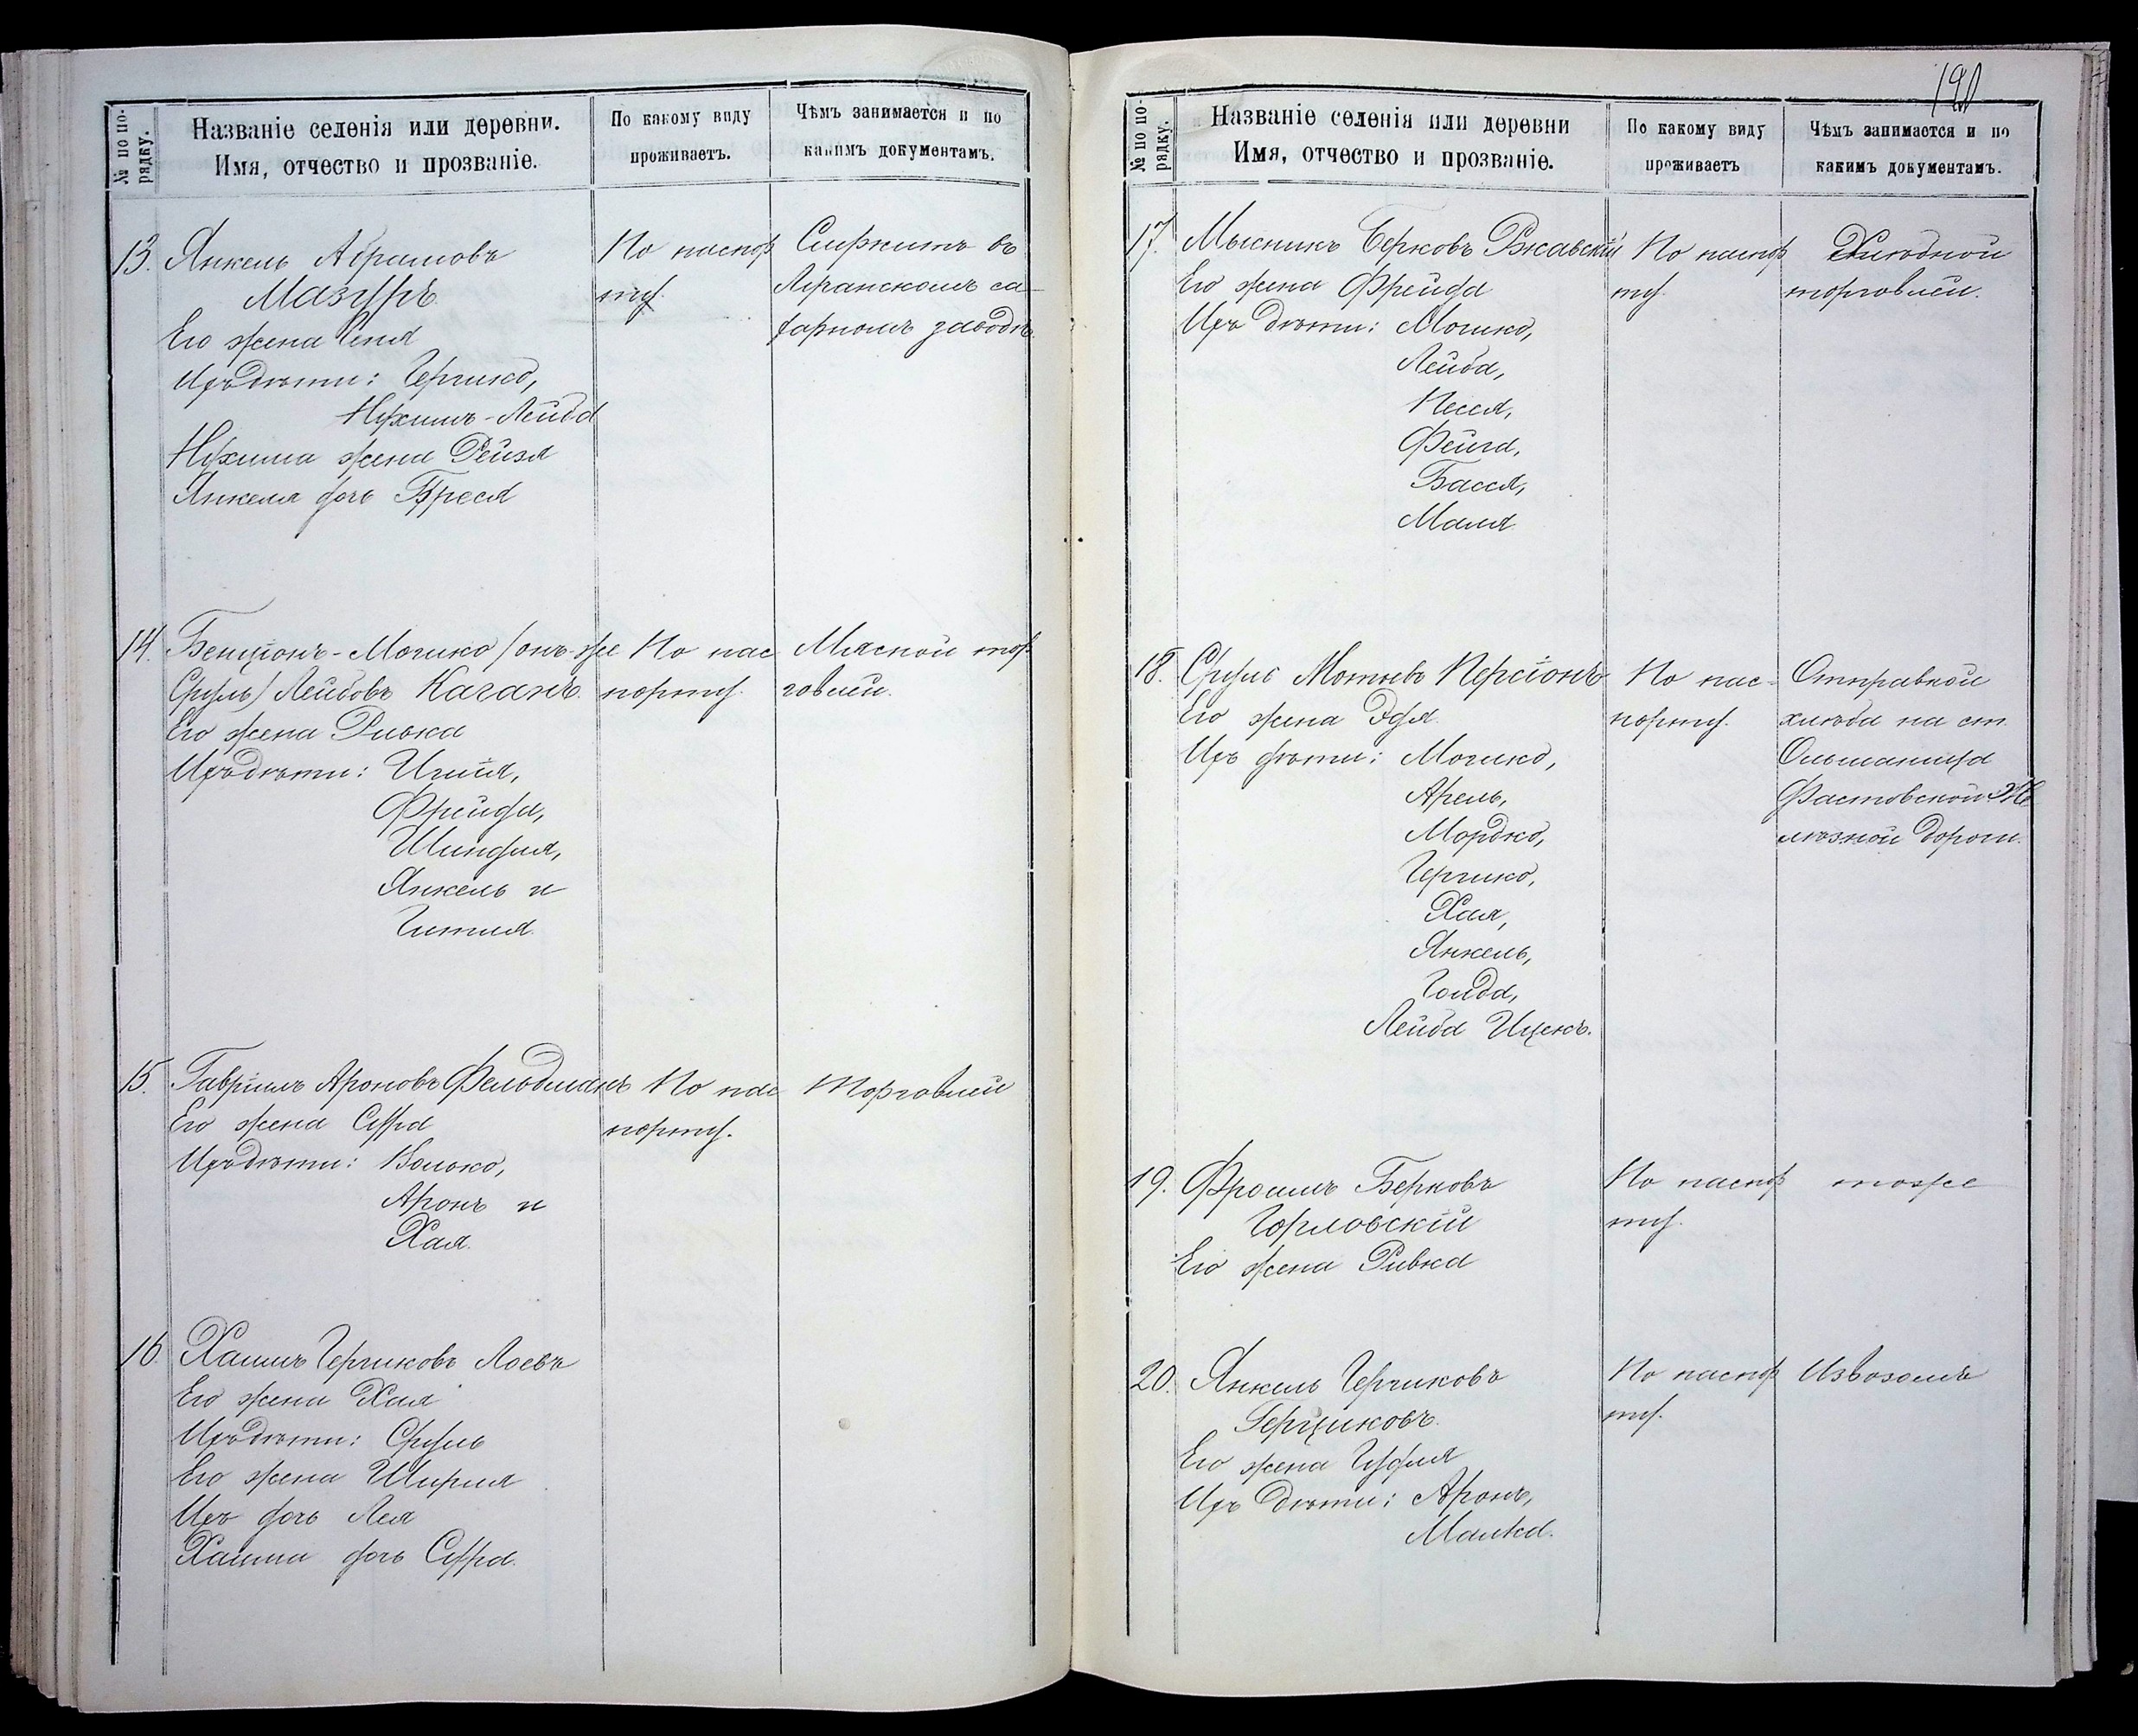 № по по-
рядку.
Названіе селенія или деревни.
Имя, отчество и прозваніе.
По какому виду
проживаетъ.
Чѣмъ занимается и по
какимъ документамъ.
13. Янкель Абрамовъ
Мазуръ
Его жена Геня
Ихъ дѣти: Гершко,
Нухимъ-Лейба
Нухима жена Рейзя
Янкеля дочь Бруся
По паспор
ту.
Служитъ въ
са-
харномъ заводѣ.
14. Бенціонъ-Мошко (онъ-же
Сруль) Лейбовъ Каганъ.
Его жена Ривка
Ихъ дѣти:
Фрейда,
Шиндля,
Янкель и
Гитля.
По пас
порту.
Мясной тор
говлей.
15. Гавріилъ Ароновъ Фельдманъ
Его жена Сура
Ихъ дѣти: Волько,
Аронъ и
Хая.
По пас
порту.
Торговлей
16. Хаимъ Гершковъ Лоевъ
Его жена Хая
Ихъ дѣти: Сруль
Его жена Шифля
Ихъ дочь Лея
Хаима дочь Сура.
190
№ по по-
рядку.
Названіе селенія или деревни
Имя, отчество и прозваніе.
По какому виду
проживаетъ
Чѣмъ занимается и по
какимъ документамъ.
17. Берковъ Ржавскій
Его жена Фрейда
Ихъ дѣти: Мошко,
Лейба,
Песся,
Фейга,
Бася,
Маля
По паспор
ту.
торговлей.
18. Сруль Мотьевъ Персіонъ
Его жена Эдя.
Ихъ дѣти: Мошко,
Арель,
Мордко,
Гершко,
Хая,
Янкель,
Голда,
Лейба Ицекъ.
По пас-
порту.
Отправкой
хлѣба на ст.
Ольшаница
Фастовской Же
лѣзной дороги.
19. Фроимъ Берковъ
Горловскій
Его жена Ривка
По паспор
ту.
тоже
20. Янкель Гершковъ
Герциковъ.
Его жена Гудля
Ихъ дѣти: Аронъ,
Малка.
По паспор
ту.
Извозомъ